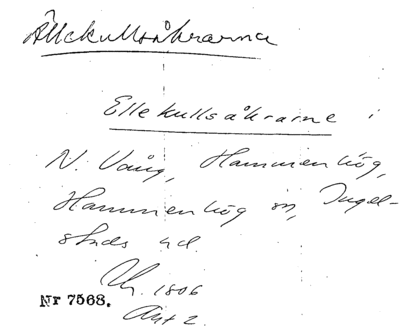 Ällekullsåkrarna
Ellekullsåkrarne i
N. Vång, Hammenhög,
Hammenhög sn, Ingel-
stads hd.
Nr 7568.
1806
Akt 2.